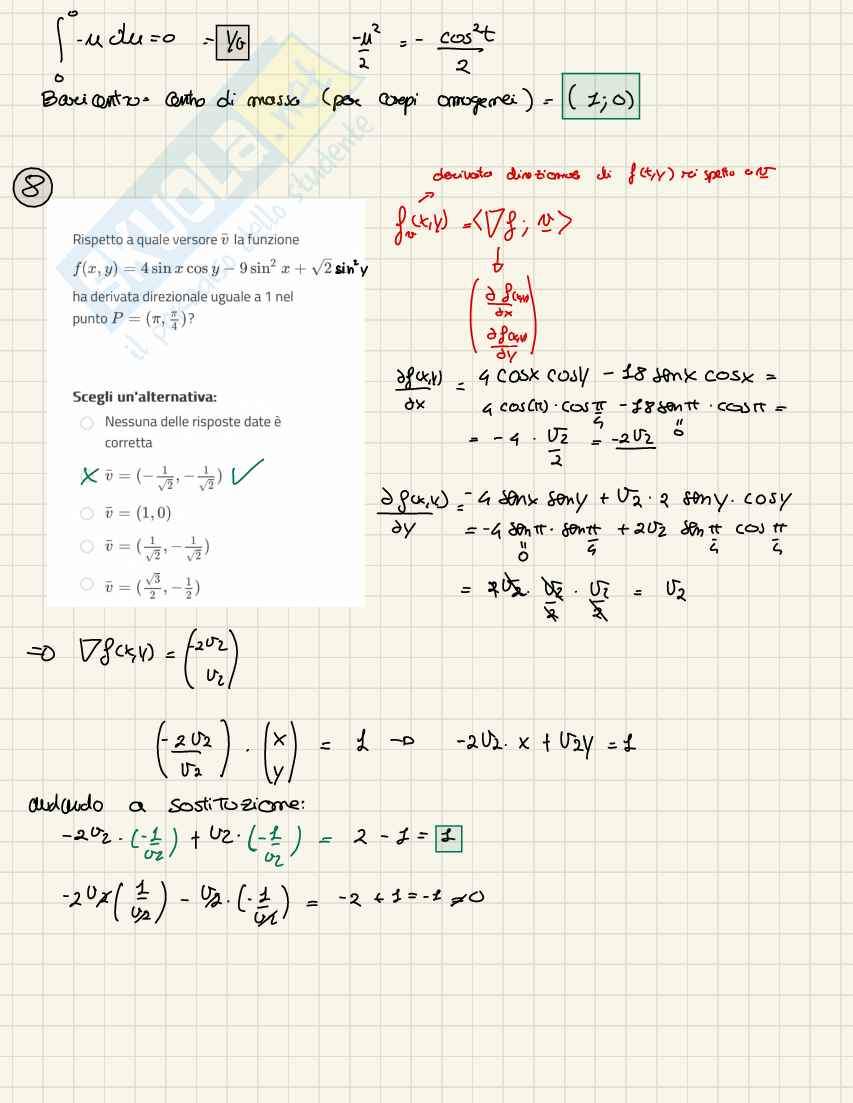 ∫₀⁰ -u du = 0 = 1/0   -u²/2 = - cos²t/2
Baricentro = Centro di massa (per corpi omogenei) = (1;0)
8
derivata direzionale di f(x,y) rispetto a v
f_v(x,y) = <∇f; v>
(∂f(x,y)/∂x
∂f(x,y)/∂y)
Rispetto a quale versore v̄ la funzione
f(x, y) = 4 sin x cos y − 9 sin² x + √2 sin²y
ha derivata direzionale uguale a 1 nel
punto P = (π, π/4)?
Scegli un'alternativa:
Nessuna delle risposte date è
corretta
X v̄ = (−1/√2, −1/√2) ✓
v̄ = (1, 0)
v̄ = (1/√2, −1/√2)
v̄ = (√3/2, −1/2)
∂f(x,y)/∂x = 4 cosx cosy − 18 senx cosx =
4 cos(π) · cos π/4 − 18 senπ · cosπ =
= −4 · √2/2 = −2√2   " 0
∂f(x,y)/∂y = −4 senx seny + √2 · 2 seny · cosy
= −4 senπ · sen π/4 + 2√2 sen π/4 cos π/4
" 0
= 2√2 · √2/2 · √2/2 = √2
=> ∇f(x,y) = (−2√2
√2)
(−2√2
√2) · (x
y) = 1 → −2√2 · x + √2y = 1
andando a sostituzione:
−2√2 · (−1/√2) + √2 · (−1/√2) = 2 − 1 = 1
−2√2 (1/√2) − √2 · (−1/√2) = −2 + 1 = −1 ≠ 0
SKUOLA.net
il paradiso dello studente